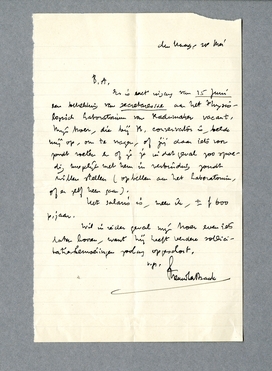 den Haag, 20 Mei
B.A.
Er is met ingang van 15 Juni
een betrekking van secretaresse aan het Physio-
logisch Laboratorium van Rademaker vacant.
Mijn broer, die bij R. conservator is, belde
mij op, om te vragen, of jij daar iets voor
zoudt voelen & of je je in dat geval zoo spoe-
dig mogelijk met hem in verbinding zoudt
willen stellen (opbellen aan het laboratorium,
of er zelf heen gaan).
Het salaris is, meen ik, ± f 600
p. jaar.
Wil in ieder geval mijn broer even iets
laten hooren, want hij heeft verdere sollici-